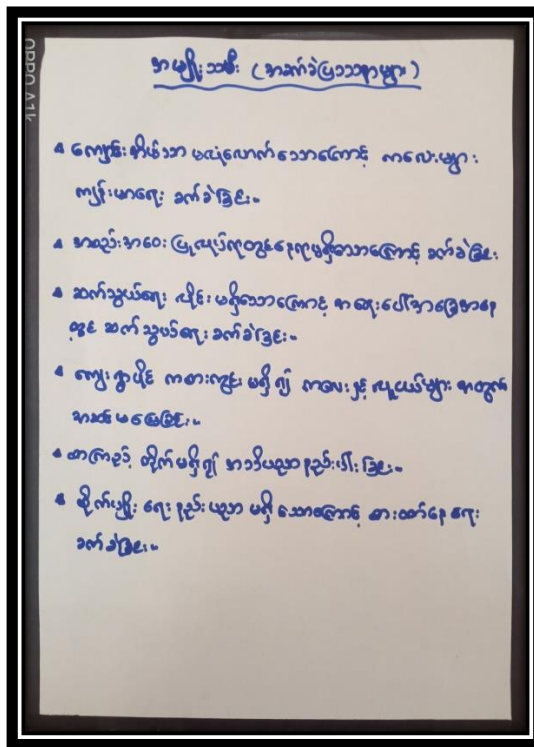 OPPO A1k
အမျိုးသမီး (အခက်ခဲပြဿနာများ)
▲ ကျောင်းအိမ်သာ မလုံလောက်သောကြောင့် ကလေးများ
ကျန်းမာရေး ခက်ခဲခြင်း။
▲ အစည်းအဝေး ပြုလုပ်ရာတွင်နေရာမရှိသောကြောင့် ခက်ခဲခြင်း
▲ ဆက်သွယ်ရေး လိုင်းမရှိသောကြောင့် အရေးပေါ်အခြေအနေ
တွင် ဆက်သွယ်ရေး ခက်ခဲခြင်း။
▲ ကျေးရွာပိုင် ကစားကွင်း မရှိ၍ ကလေးနှင့် လူငယ်များ အတွက်
အဆင်မပြေခြင်း။
▲ စာကြည့် တိုက်မရှိ၍ အသိပညာ နည်းပါးခြင်း။
▲ စိုက်ပျိုး ရေး နည်းပညာ မရှိသောကြောင့် စားဝတ်နေရေး
ခက်ခဲခြင်း။